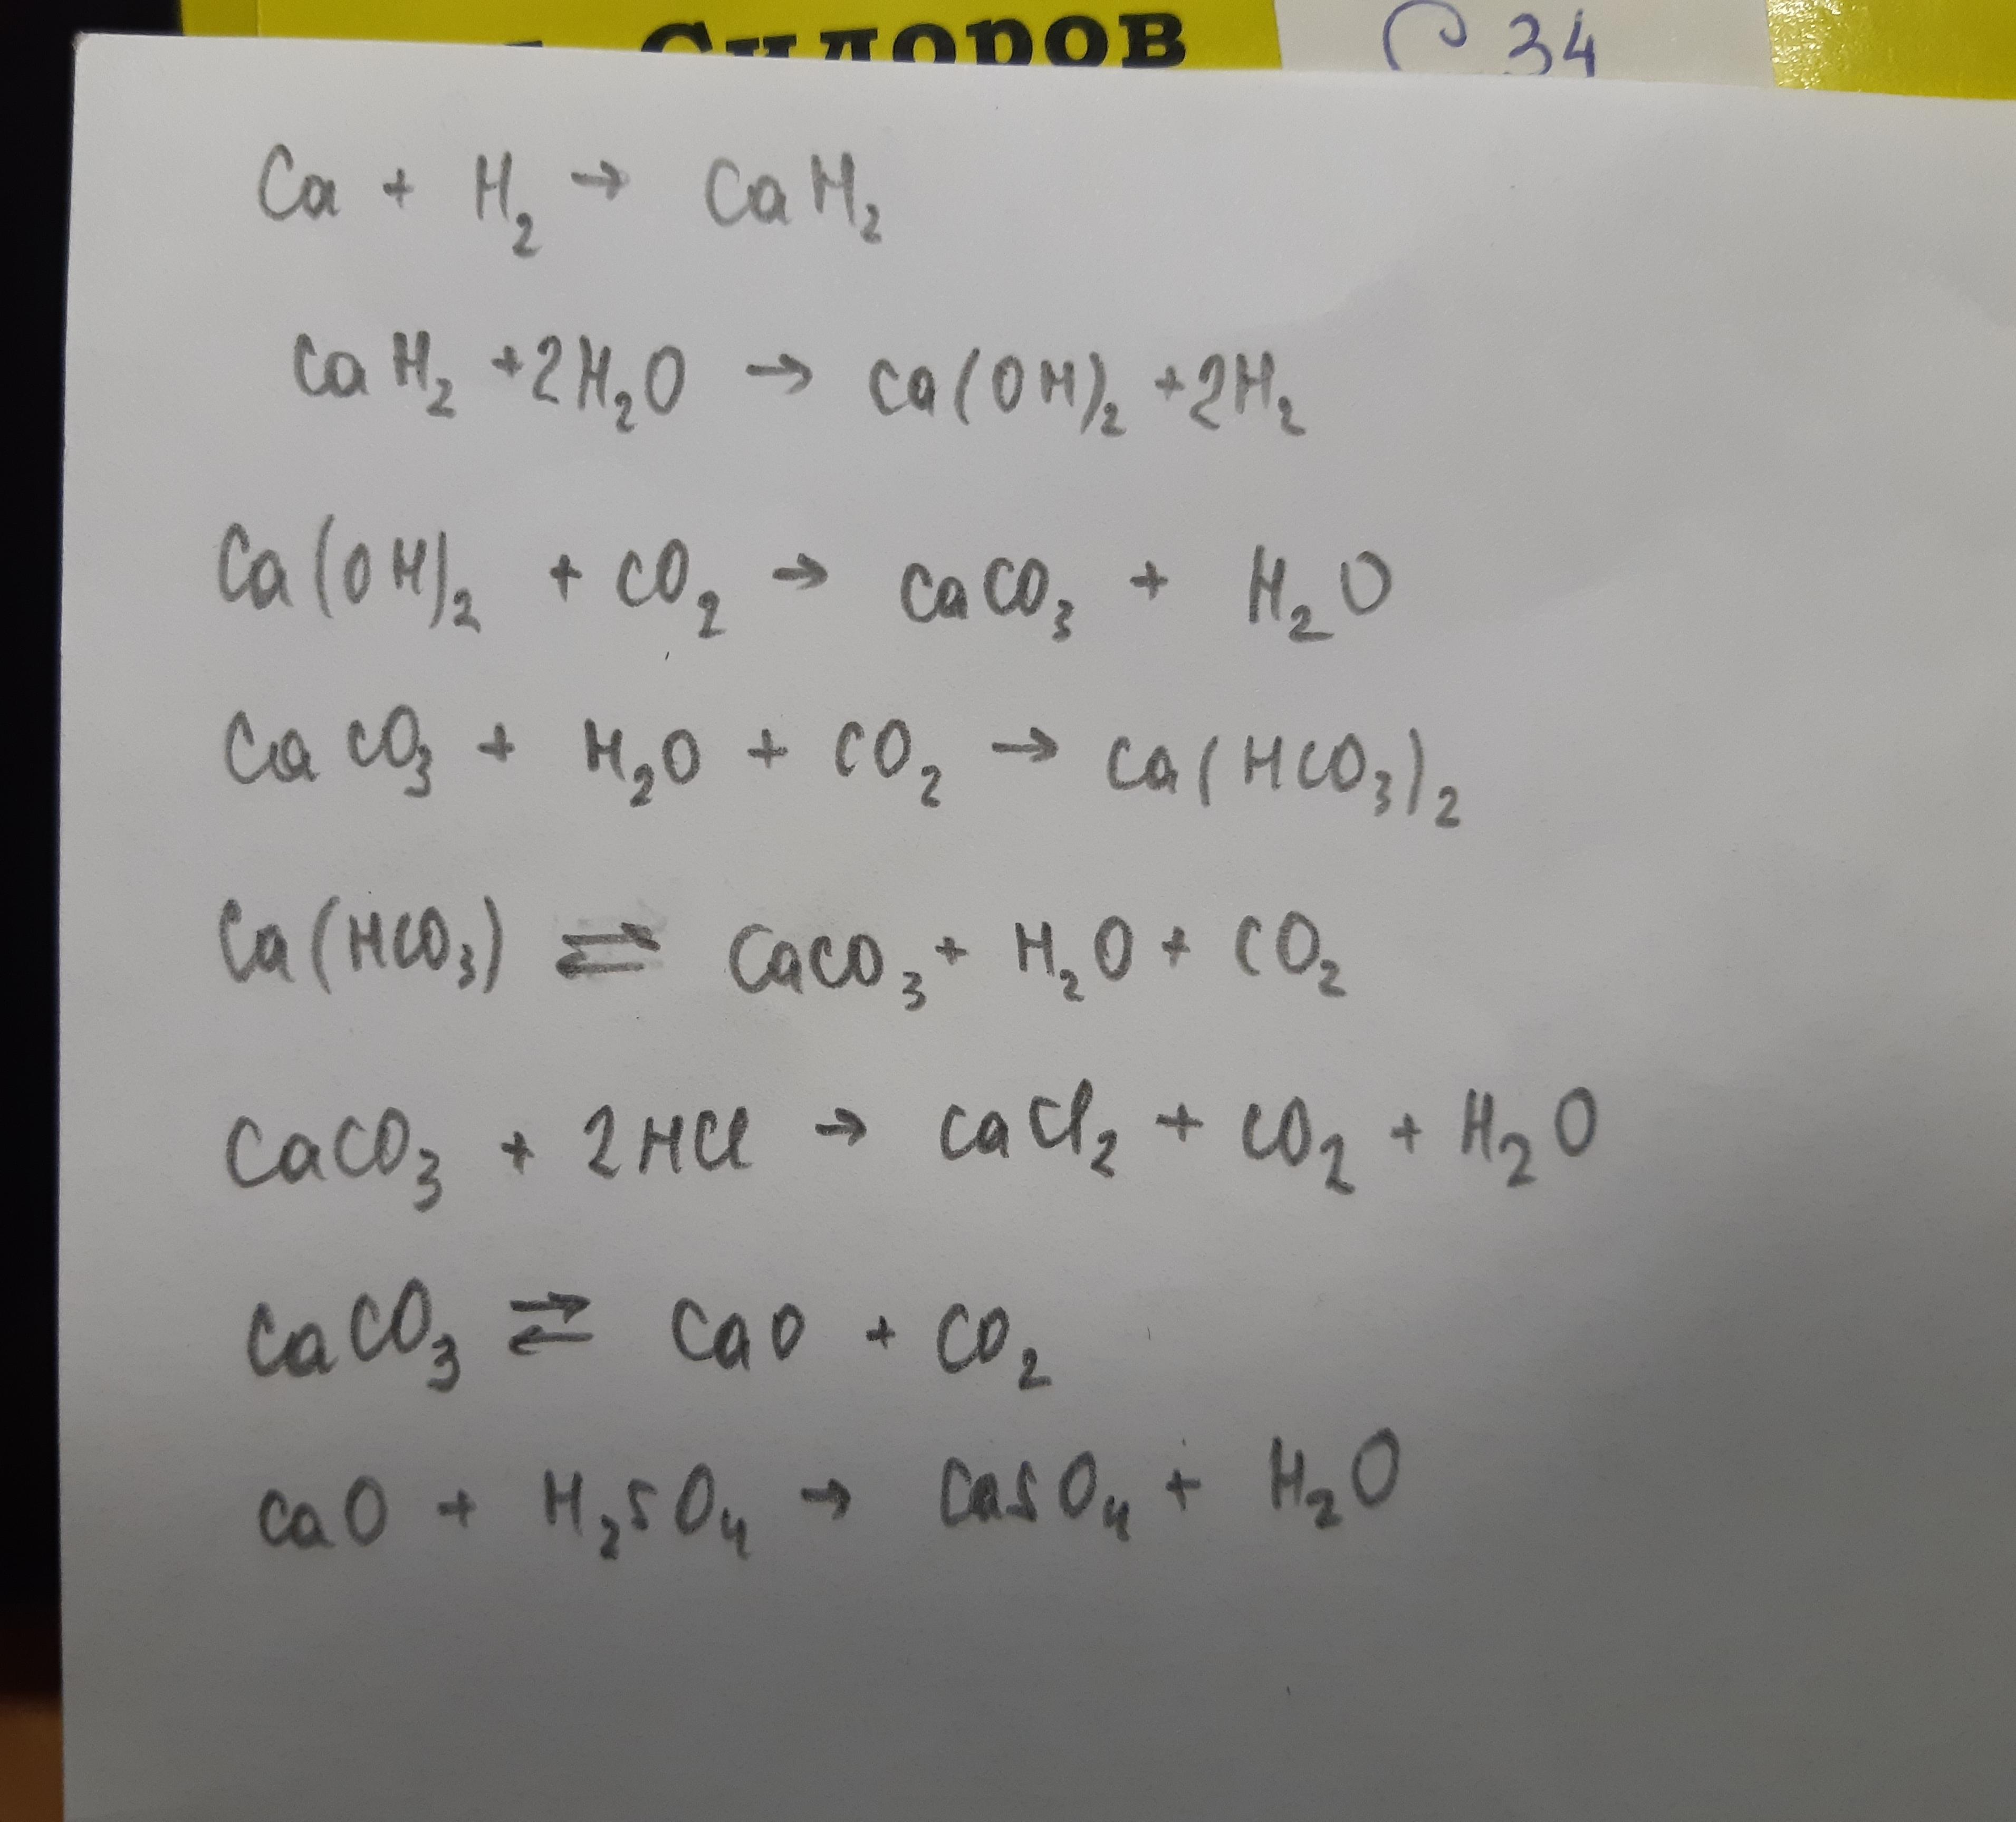 Сидоров
С 34
Ca + H₂ → CaH₂
CaH₂ + 2H₂O → Ca(OH)₂ + 2H₂
Ca(OH)₂ + CO₂ → CaCO₃ + H₂O
CaCO₃ + H₂O + CO₂ → Ca(HCO₃)₂
Ca(HCO₃) ⇌ CaCO₃ + H₂O + CO₂
CaCO₃ + 2HCl → CaCl₂ + CO₂ + H₂O
CaCO₃ ⇌ CaO + CO₂
CaO + H₂SO₄ → CaSO₄ + H₂O